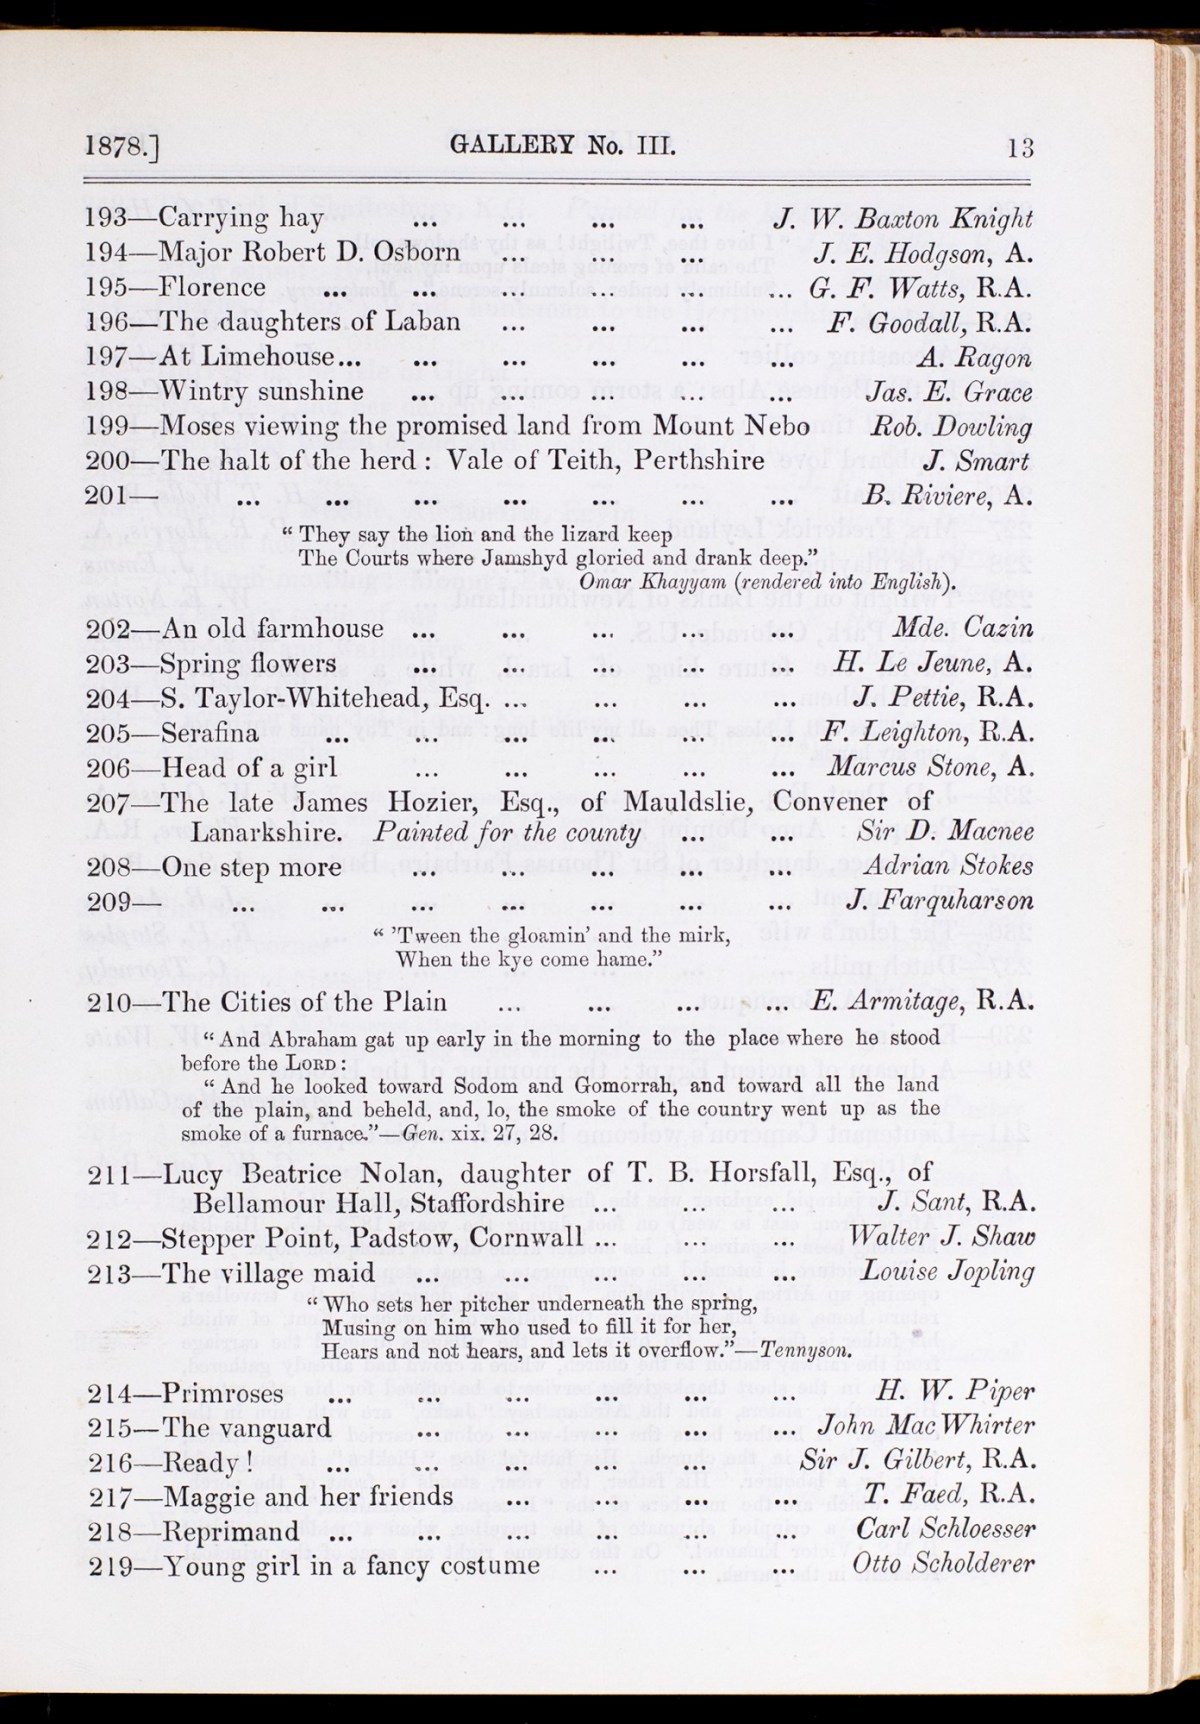 1878.] GALLERY No. III. 13
193—Carrying hay ... ... ... ... J. W. Baxton Knight
194—Major Robert D. Osborn ... ... ... J. E. Hodgson, A.
195—Florence ... ... ... ... ... ... G. F. Watts, R.A.
196—The daughters of Laban ... ... ... ... F. Goodall, R.A.
197—At Limehouse... ... ... ... ... ... A. Ragon
198—Wintry sunshine ... ... ... ... ... Jas. E. Grace
199—Moses viewing the promised land from Mount Nebo Rob. Dowling
200—The halt of the herd : Vale of Teith, Perthshire J. Smart
201— ... ... ... ... ... ... ... B. Riviere, A.
“ They say the lion and the lizard keep
The Courts where Jamshyd gloried and drank deep.”
Omar Khayyam (rendered into English).
202—An old farmhouse ... ... ... ... ... Mde. Cazin
203—Spring flowers ... ... ... ... H. Le Jeune, A.
204—S. Taylor-Whitehead, Esq. ... ... ... ... J. Pettie, R.A.
205—Serafina ... ... ... ... ... ... F Leighton, R.A.
206—Head of a girl ... ... ... ... ... Marcus Stone, A.
207—The late James Hozier, Esq., of Mauldslie, Convener of
Lanarkshire. Painted for the county ... ... Sir D. Macnee
208—One step more ... ... ... ... ... Adrian Stokes
209— ... ... ... ... ... ... ... J. Farquharson
“ ’Tween the gloamin’ and the mirk,
When the kye come hame.”
210—The Cities of the Plain ... ... ... ... E. Armitage, R.A.
“ And Abraham gat up early in the morning to the place where he stood
before the LORD :
“ And he looked toward Sodom and Gomorrah, and toward all the land
of the plain, and beheld, and, lo, the smoke of the country went up as the
smoke of a furnace.”—Gen. xix. 27, 28.
211—Lucy Beatrice Nolan, daughter of T. B. Horsfall, Esq., of
Bellamour Hall, Staffordshire ... ... ... J. Sant, R.A.
212—Stepper Point, Padstow, Cornwall ... ... ... Walter J. Shaw
213—The village maid ... ... ... ... ... Louise Jopling
“ Who sets her pitcher underneath the spring,
Musing on him who used to fill it for her,
Hears and not hears, and lets it overflow.”—Tennyson.
214—Primroses ... ... ... ... ... ... H. W. Piper
215—The vanguard ... ... ... ... ... John MacWhirter
216—Ready ! ... ... ... ... ... Sir J. Gilbert, R.A.
217—Maggie and her friends ... ... ... ... T. Faed, R.A.
218—Reprimand ... ... ... ... ... ... Carl Schloesser
219—Young girl in a fancy costume ... ... ... Otto Scholderer